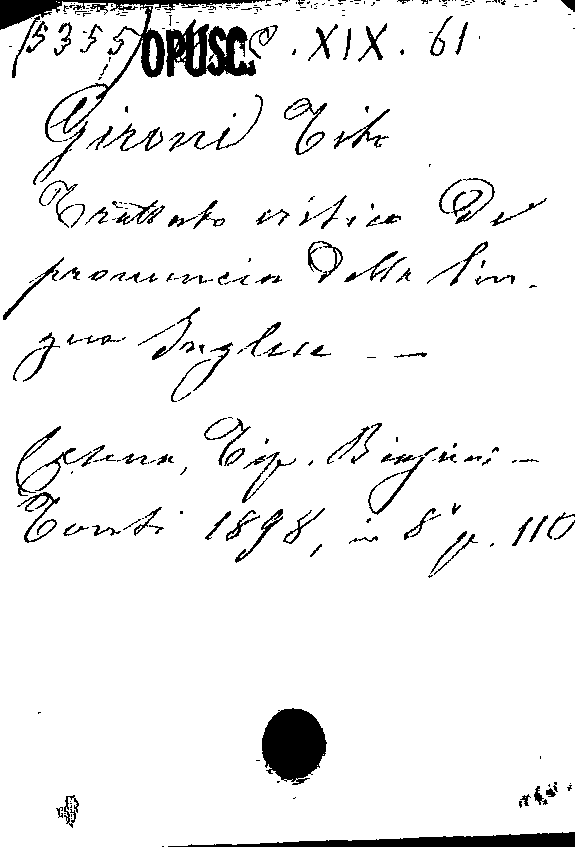 (5355) OPUSC. XIX. 61
Gironi Tito
Trattato critico Di
pronuncia Della lin-
gua Inglese - —
Cesena, Tip. Biasini -
Tonti 1898, in 8° p. 110